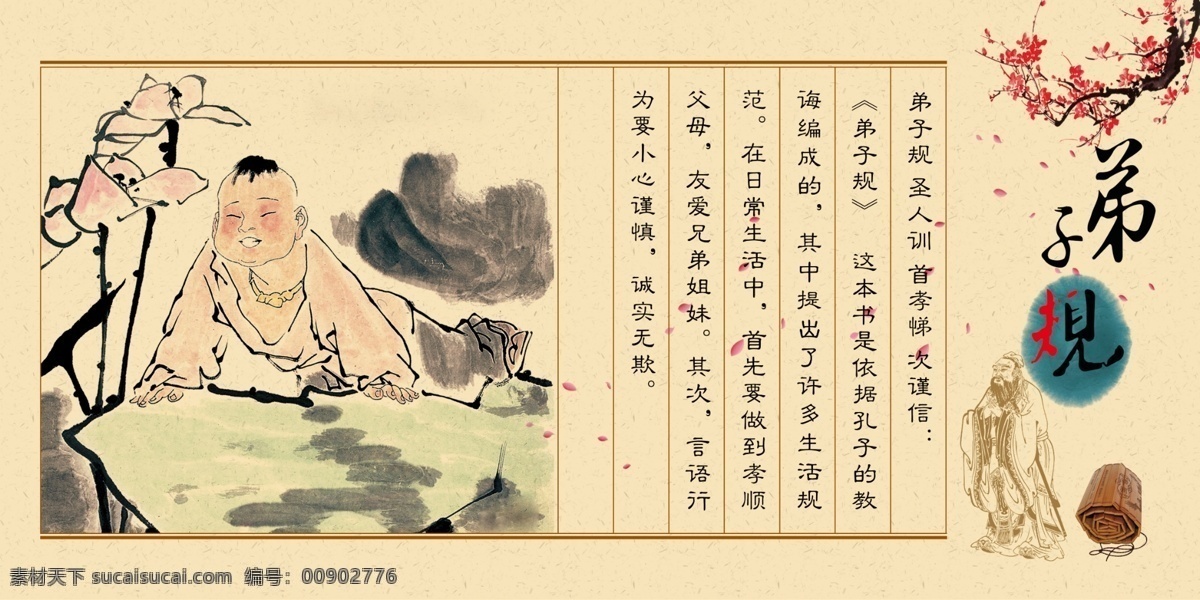 弟子规
弟子规 圣人训 首孝悌 次谨信：
《弟子规》 这本书是依据孔子的教
诲编成的，其中提出了许多生活规
范。在日常生活中，首先要做到孝顺
父母，友爱兄弟姐妹。其次，言语行
为要小心谨慎，诚实无欺。
素材天下 sucaisucai.com 编号：00902776